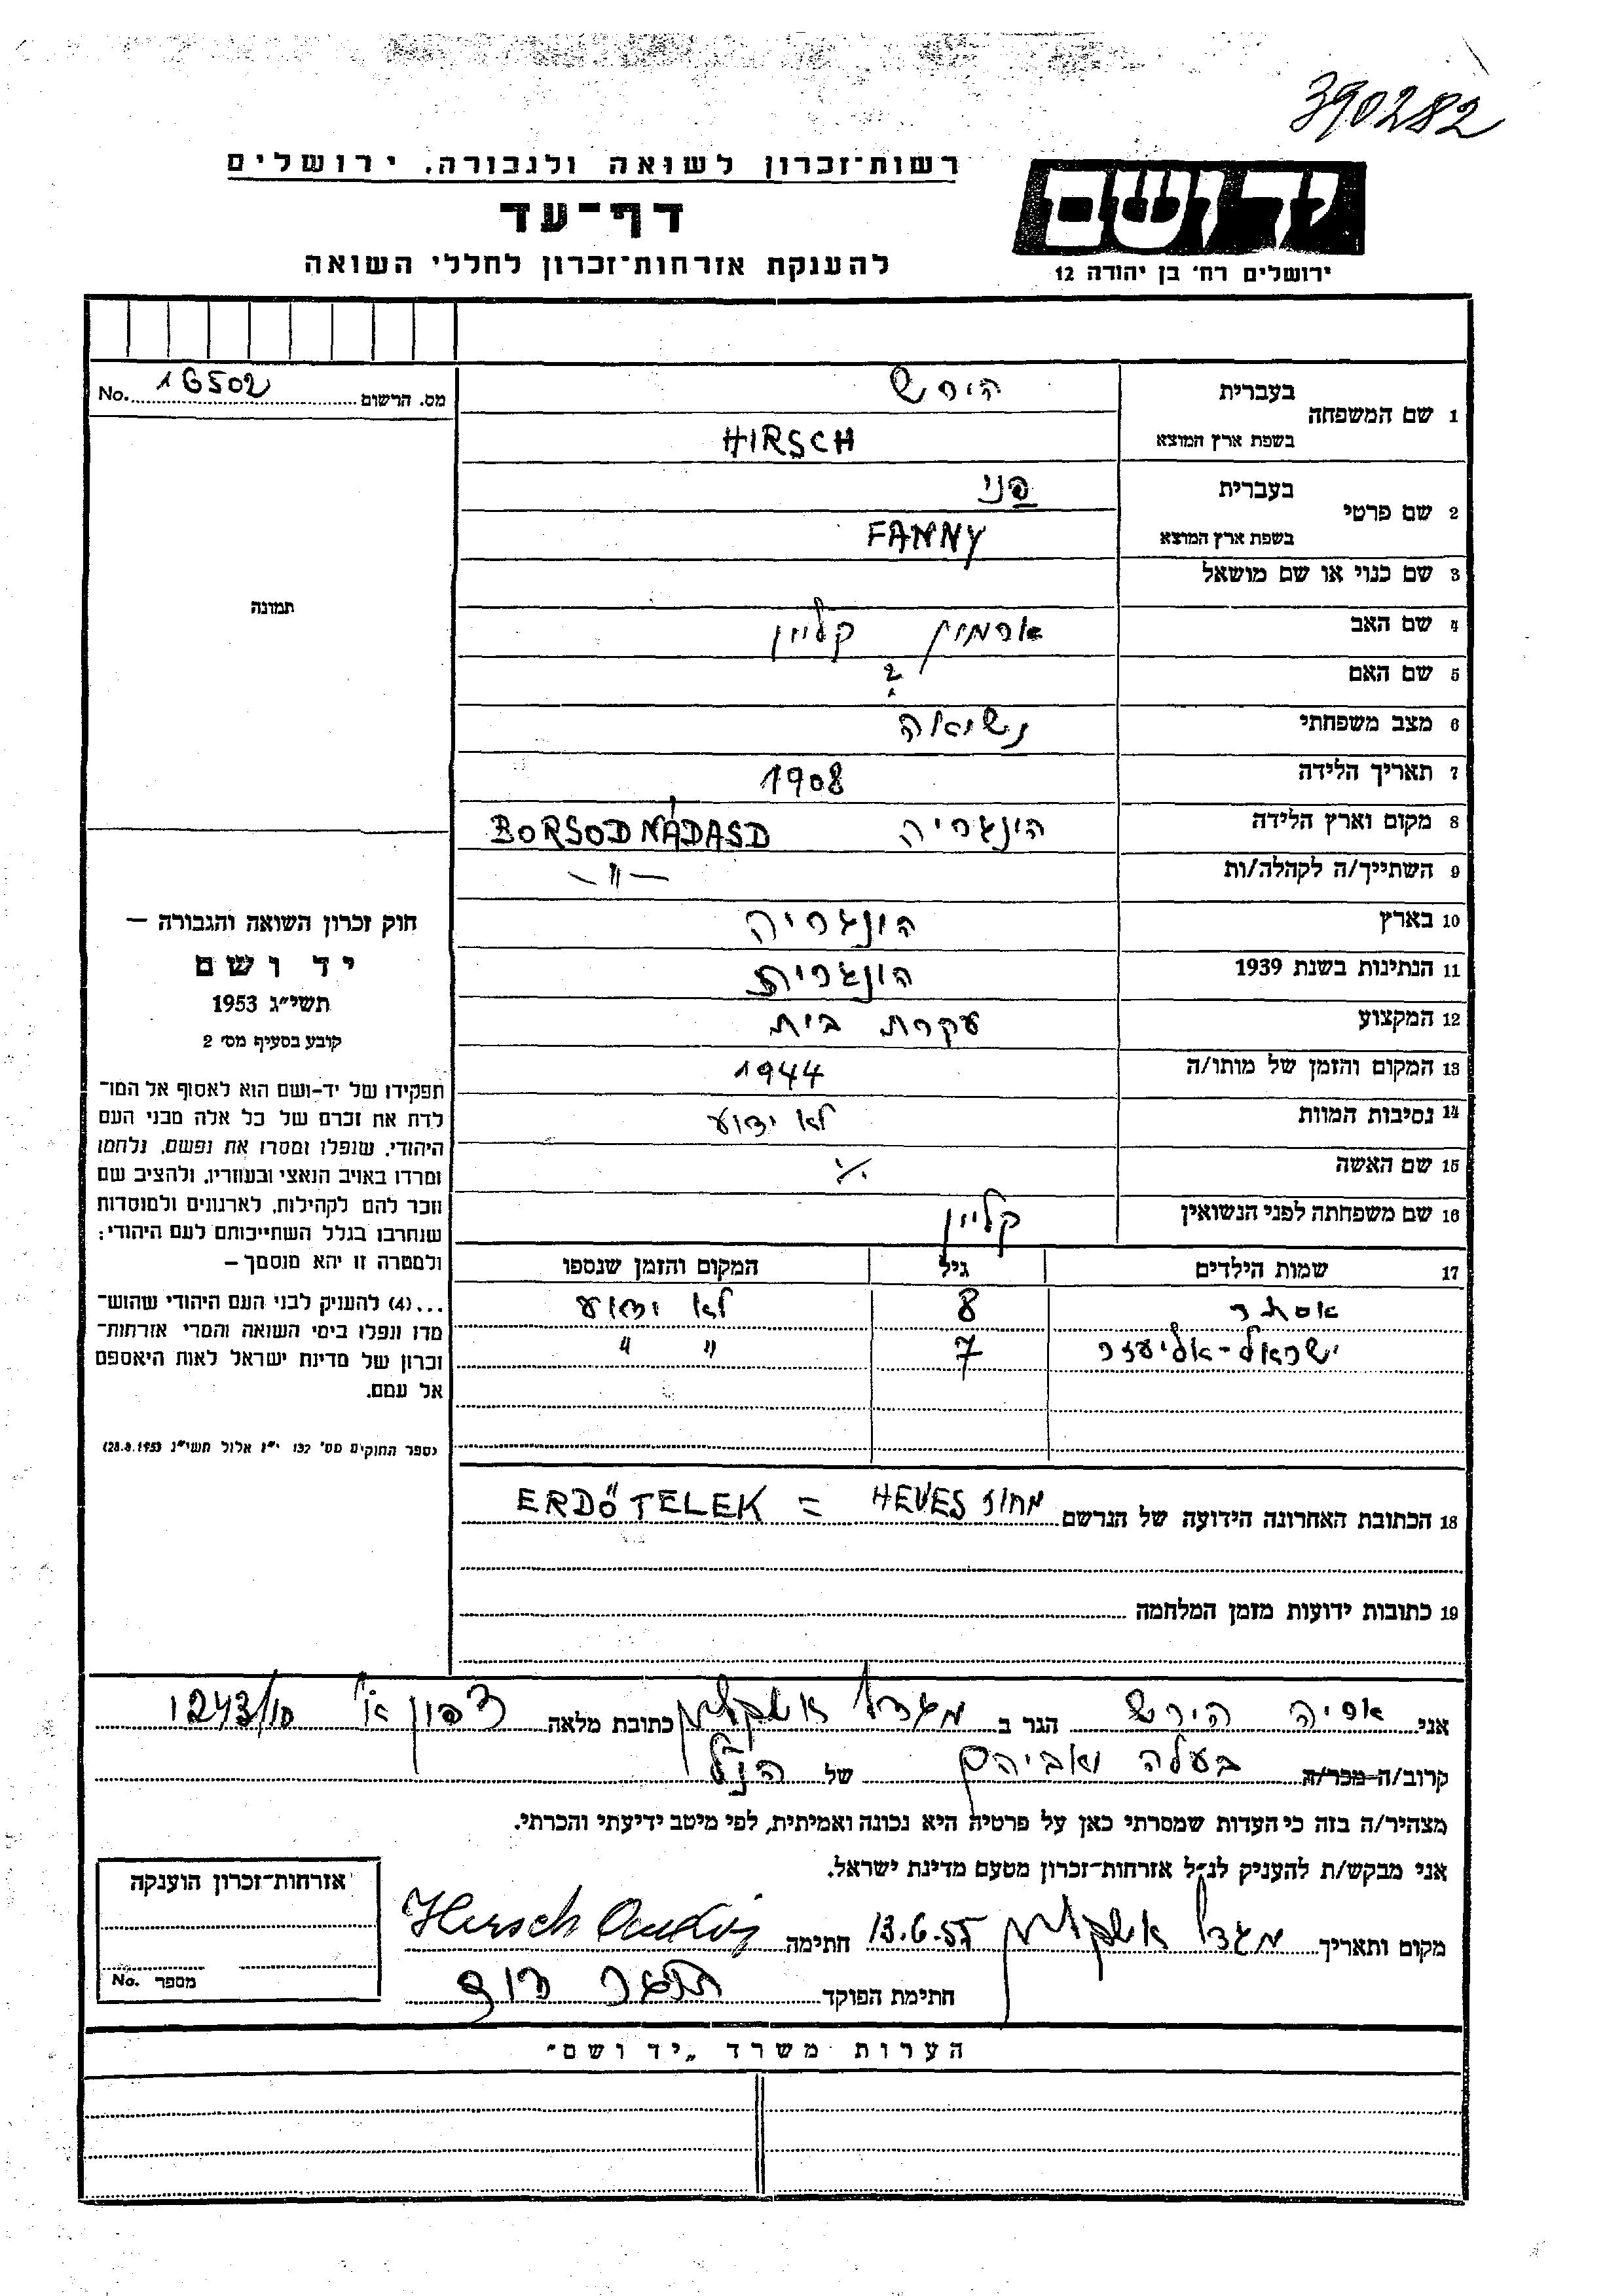 390282
רשות־זכרון לשואה ולגבורה, ירושלים
ידושם
דף־עד
להענקת אזרחות־זכרון לחללי השואה
ירושלים רח׳ בן יהודה 12
מס. הרשום 16502 No.
1 שם המשפחה
בעברית הירש
בשפת ארץ המוצא HIRSCH
2 שם פרטי
בעברית פני
בשפת ארץ המוצא FANNY
3 שם כנוי או שם מושאל
4 שם האב ארמין קליין
5 שם האם ?
6 מצב משפחתי נשואה
7 תאריך הלידה 1908
8 מקום וארץ הלידה הונגריה BORSODNÁDASD
9 השתייך/ה לקהלה/ות —"—
10 בארץ הונגריה
11 הנתינות בשנת 1939 הונגרית
12 המקצוע עקרת בית
13 המקום והזמן של מותו/ה 1944
14 נסיבות המוות לא ידוע
15 שם האשה ./.
16 שם משפחתה לפני הנשואין קליין
17 שמות הילדים גיל המקום והזמן שנספו
אסתר 8 לא ידוע
ישראל-אליעזר 7 " "
18 הכתובת האחרונה הידועה של הנרשם מחוז HEVES = ERDŐTELEK
19 כתובות ידועות מזמן המלחמה
תמונה
חוק זכרון השואה והגבורה —
יד ושם
תשי״ג 1953
קובע בסעיף מס׳ 2
תפקידו של יד-ושם הוא לאסוף אל המו־
לדת את זכרם של כל אלה מבני העם
היהודי, שנפלו ומסרו את נפשם, נלחמו
ומרדו באויב הנאצי ובעוזריו, ולהציב שם
וזכר להם לקהילות, לארגונים ולמוסדות
שנחרבו בגלל השתייכותם לעם היהודי;
ולמטרה זו יהא מוסמך —
...(4) להעניק לבני העם היהודי שהוש־
מדו ונפלו בימי השואה והמרי אזרחות־
זכרון של מדינת ישראל לאות היאספם
אל עמם.
(ספר החוקים מס׳ 132 י״ז אלול תשי״ג 28.8.1953)
אני הירש הגר ב מגדל אשקלון כתובת מלאה צפון א׳ 1243/10
קרוב/ה מכר/ה בעלה ואביהם של הנ״ל
מצהיר/ה בזה כי העדות שמסרתי כאן על פרטיה היא נכונה ואמיתית, לפי מיטב ידיעתי והכרתי.
אני מבקש/ת להעניק לנ״ל אזרחות־זכרון מטעם מדינת ישראל.
מקום ותאריך מגדל אשקלון 13.6.55 חתימה Hirsch
חתימת הפוקד
אזרחות־זכרון הוענקה
מספר No.
הערות משרד „יד ושם״